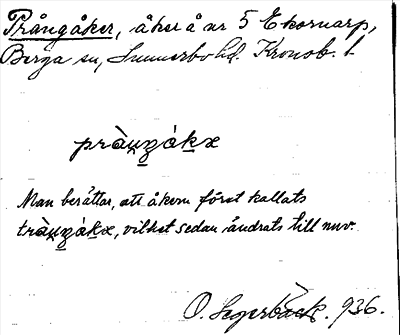 Prångåker, åker å nr 5 Ekornarp,
Berga sn, Sunnerbo hd. Kronob. l.
pràŋgákx
Man berättar, att åkern först kallats
tràŋgákx, vilket sedan ändrats till nuv.
O. Segerbäck. 936.